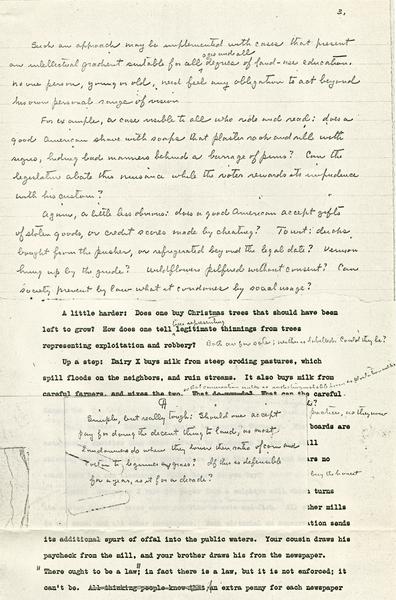 3.
Such an approach may be implemented with cases that present
ages and all
an intellectual gradient suitable for all degrees of land-use education.
No one person, young or old, need feel any obligation to act beyond
his own personal range of vision
For example, a case visible to all who ride and read: does a
good American shave with soaps that plaster rock and rill with
signs, hiding bad manners behind a barrage of puns? Can the
legislature abate this nuisance while the voter rewards its impudence
with his custom?
Again, a little less obvious: does a good American accept gifts
of stolen goods, or credit scores made by cheating? To wit: ducks
bought from the pusher, or refrigerated beyond the legal date? Venison
hung up by the guide? Wildflowers pilfered without consent? Can
society prevent by law what it condones by social usage?
A little harder: Does one buy Christmas trees that should have been
left to grow? How does one tell legitimate thinnings from trees
representing exploitation and robbery? Both are for sale; neither is labelled. Could they be?
Up a step: Dairy X buys milk from steep eroding pastures, which
spill floods on the neighbors, and ruin streams. It also buys milk from
careful farmers, and mixes the two.
What can the careful
boards are
Simple, but really tough: Should one accept
pay for doing the decent thing to land, as most
landowners do when they lower their ratio of corn and
to legumes and grass? If this is defensible
for a year, is it for a decade?
turns
her mills
ation sends
its additional spurt of offal into the public waters. Your cousin draws his
paycheck from the mill, and your brother draws his from the newspaper.
"There ought to be a law"; in fact there is a law, but it is not enforced; it
can't be. All thinking people know that An extra penny for each newspaper